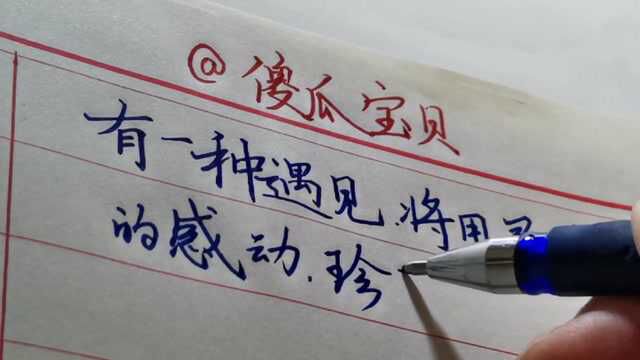 @傻瓜宝贝
有一种遇见.将用
的感动.珍